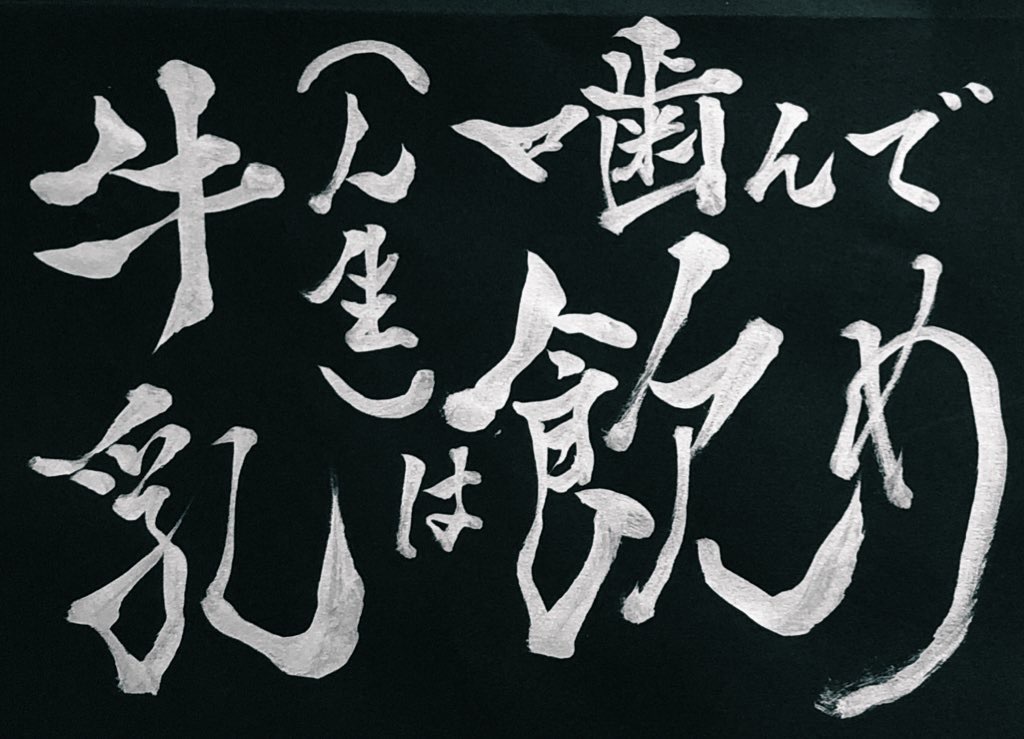 牛乳
（人生）は
噛んで
飲め